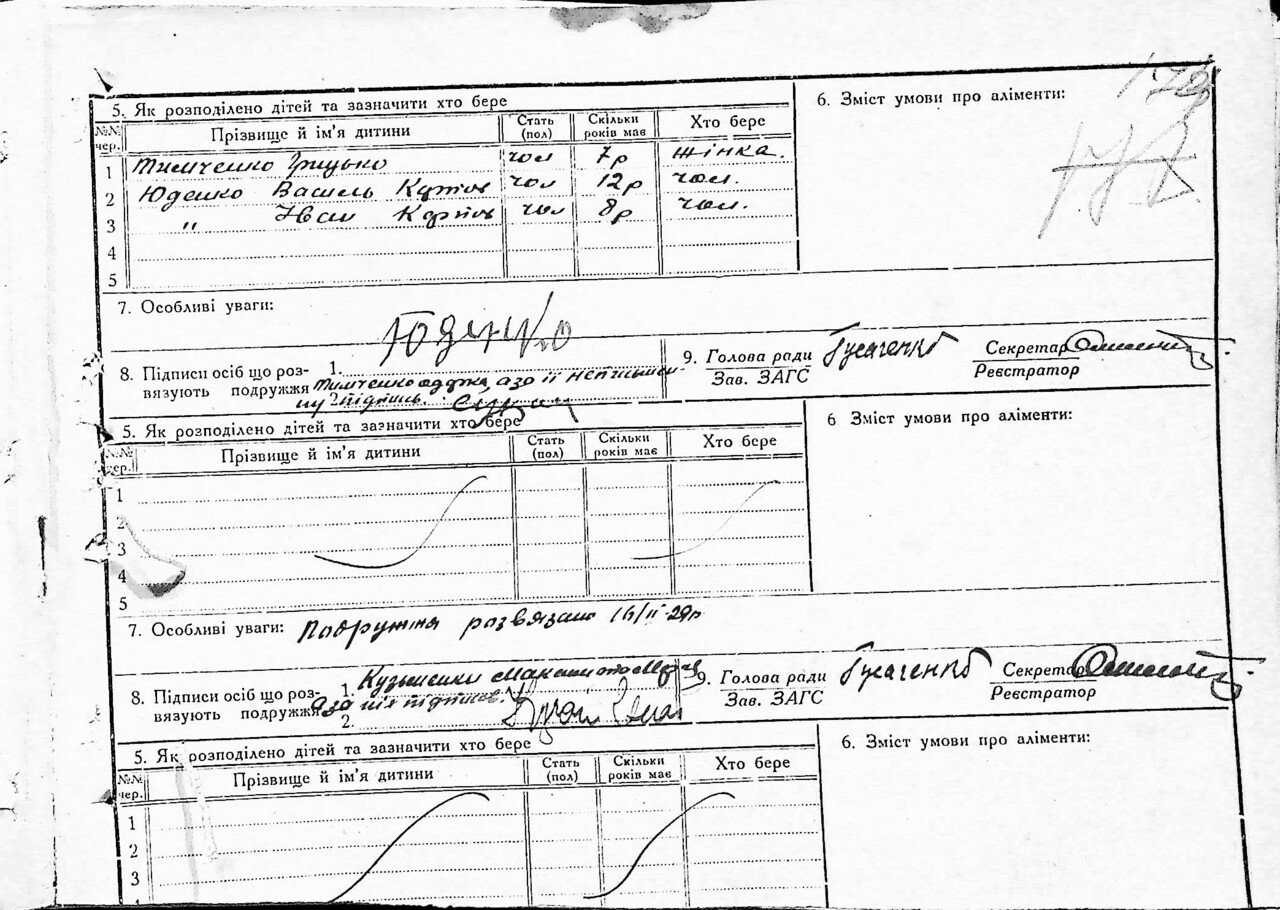 5. Як розподілено дітей та зазначити хто бере
6. Зміст умови про аліменти:
№№ чер.
Прізвище й ім'я дитини
Стать (пол)
Скільки років має
Хто бере
1 Тимченко Грицько чол 7р жінка.
2 Юденко Василь чол 12р чол.
3 " Іван чол 8р чол.
4
5
7. Особливі уваги:
8. Підписи осіб що роз-
вязують подружжя
1. Юденко
Тимченко
2. підпись.
9. Голова ради Гусаченко
Зав. ЗАГС
Секретар
Реєстратор
5. Як розподілено дітей та зазначити хто бере
6 Зміст умови про аліменти:
№№ чер.
Прізвище й ім'я дитини
Стать (пол)
Скільки років має
Хто бере
1
2
3
4
5
7. Особливі уваги: Подружжя розвязано 16/II-29р
8. Підписи осіб що роз-
вязують подружжя
1. Кузьменки
2.
9. Голова ради Гусаченко
Зав. ЗАГС
Секретар
Реєстратор
5. Як розподілено дітей та зазначити хто бере
6. Зміст умови про аліменти:
№№ чер.
Прізвище й ім'я дитини
Стать (пол)
Скільки років має
Хто бере
1
2
3